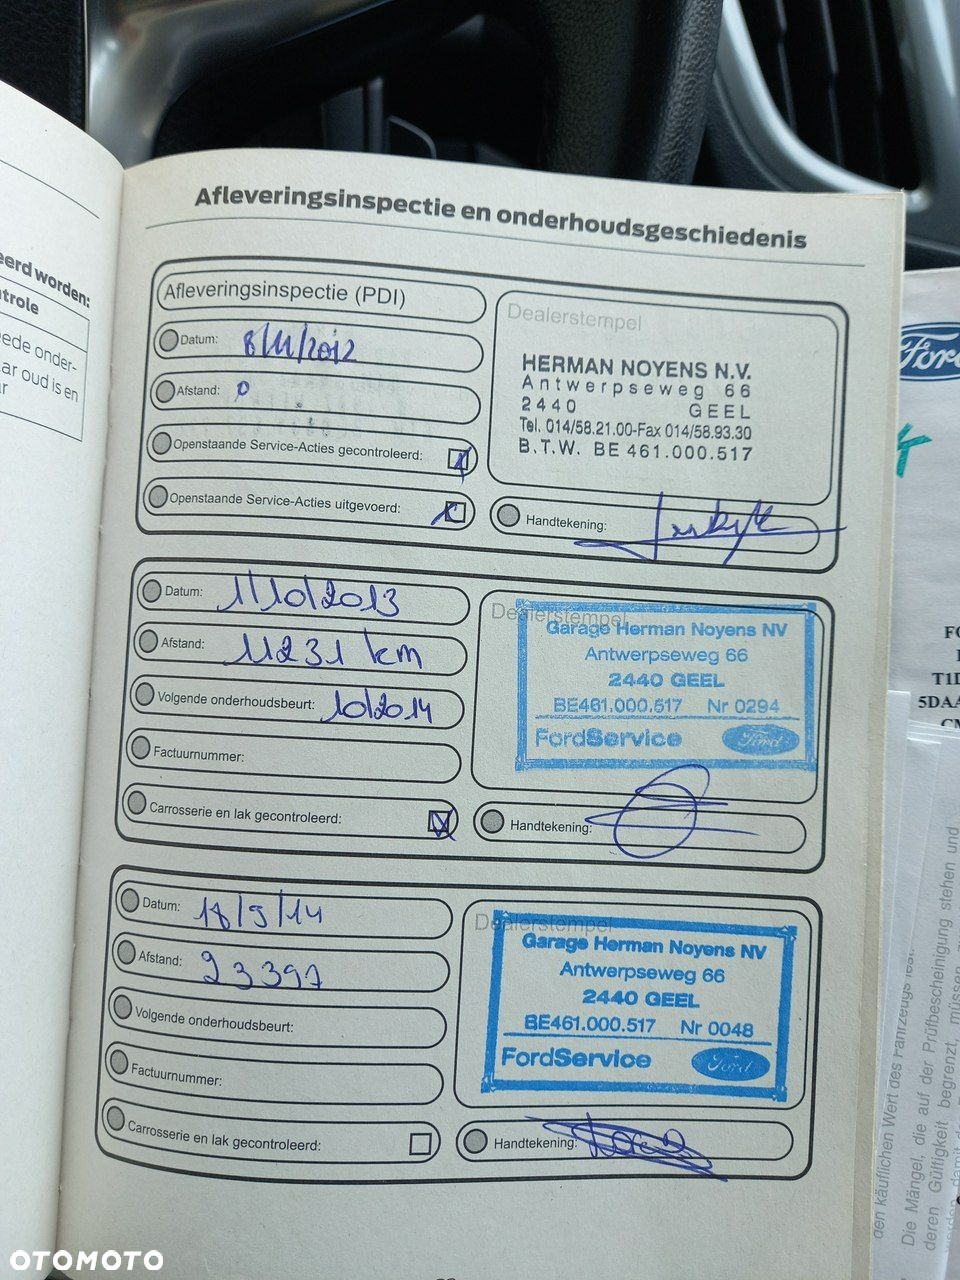 Afleveringsinspectie en onderhoudsgeschiedenis
Afleveringsinspectie (PDI)
Datum: 8/11/2012
Afstand: 0
Openstaande Service-Acties gecontroleerd:
Openstaande Service-Acties uitgevoerd:
Dealerstempel
HERMAN NOYENS N.V.
Antwerpseweg 66
2440 GEEL
Tel. 014/58.21.00-Fax 014/58.93.30
B.T.W. BE 461.000.517
Handtekening:
Datum: 1/10/2013
Afstand: 11231 km
Volgende onderhoudsbeurt: 10/2014
Factuurnummer:
Carrosserie en lak gecontroleerd:
Dealerstempel
Garage Herman Noyens NV
Antwerpseweg 66
2440 GEEL
BE461.000.517 Nr 0294
FordService Ford
Handtekening:
Datum: 18/9/14
Afstand: 23397
Volgende onderhoudsbeurt:
Factuurnummer:
Carrosserie en lak gecontroleerd:
Dealerstempel
Garage Herman Noyens NV
Antwerpseweg 66
2440 GEEL
BE461.000.517 Nr 0048
FordService Ford
Handtekening:
eerd worden:
trole
ede onder-
ar oud is en
r
Ford
FO
T1D
5DAA
CM
den käuflichen Wert des Fahrzeugs
Die Mängel, die auf der Prüfbescheinigung stehen und
deren Gültigkeit begrenzt, müssen
OTOMOTO